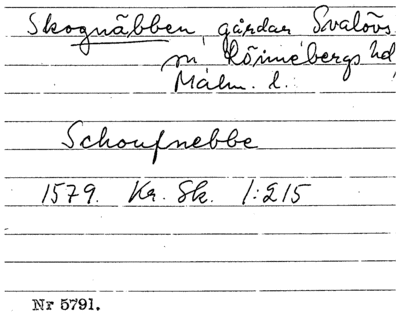 Skognäbben, gårdar Svalövs
sn Rönnebergs hd
Malm. l.
Schoufnebbe
1579. Kr. Sk. 1:215
Nr 5791.